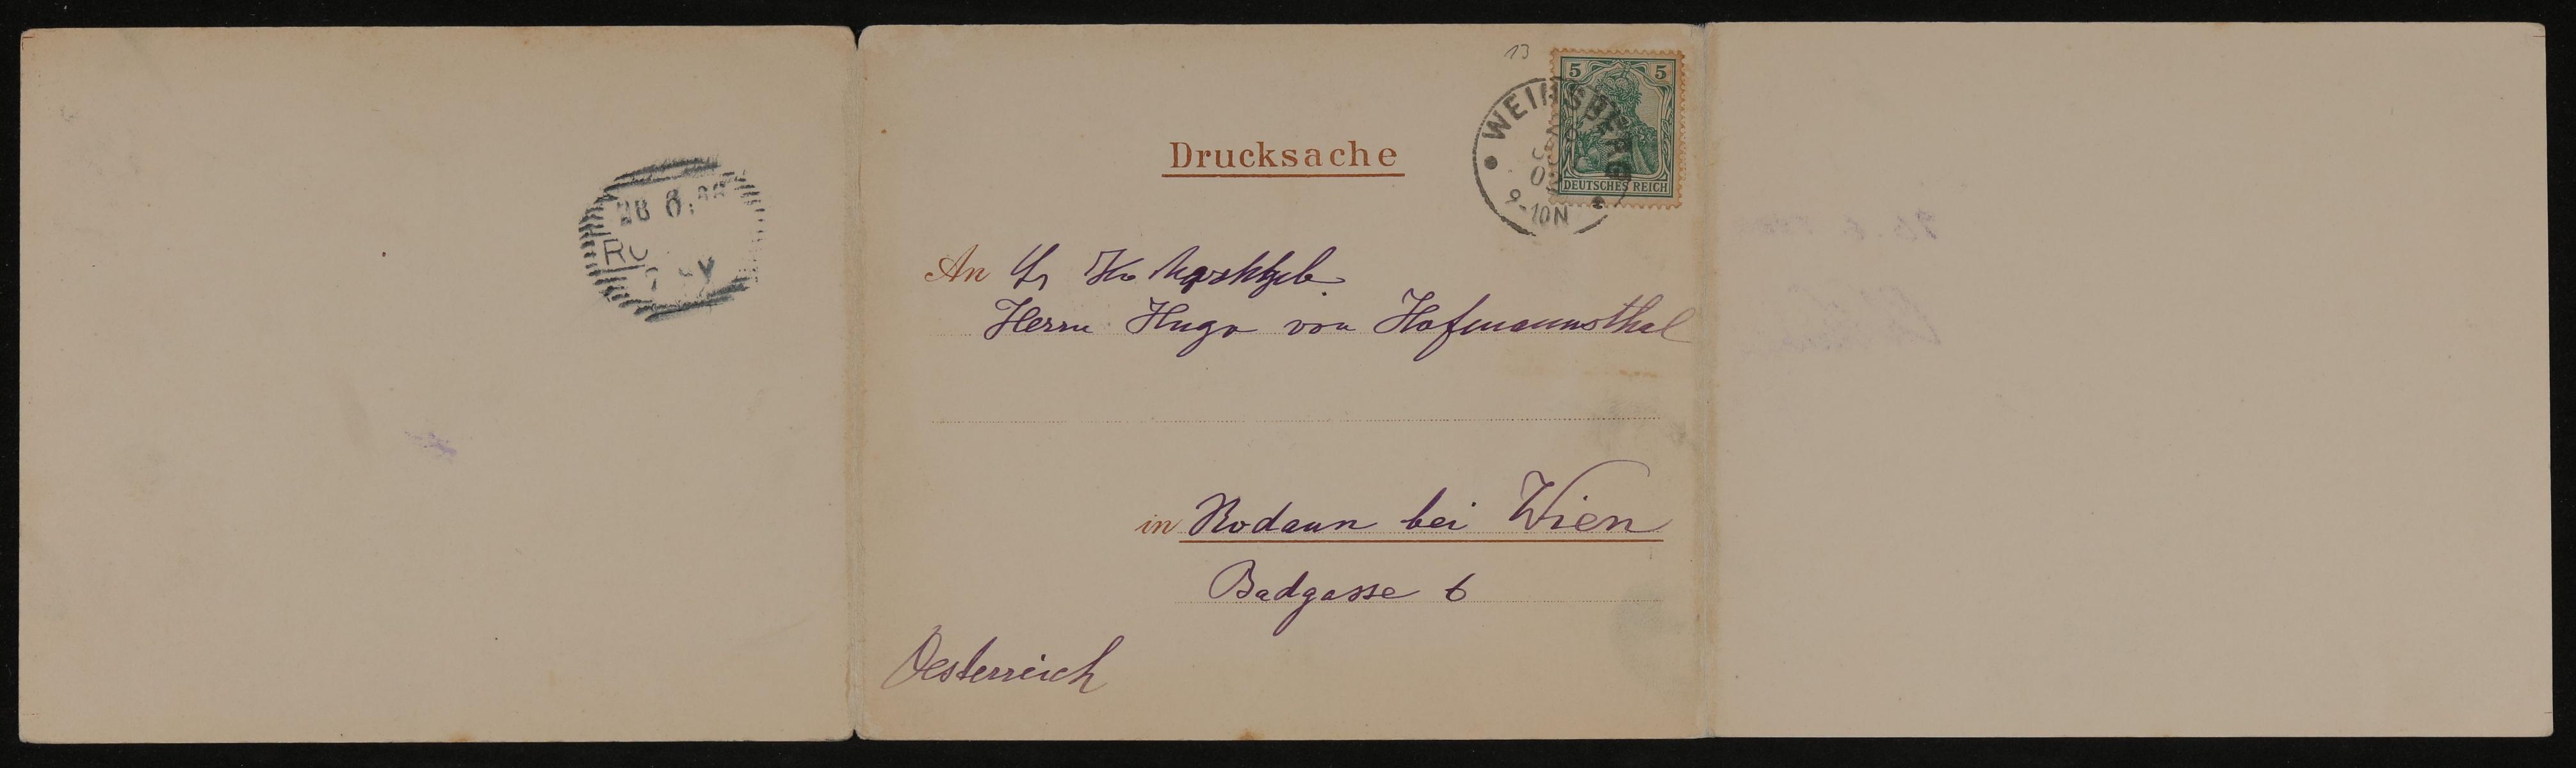 28 6.
RO
7
13
5 5
DEUTSCHES REICH
WEINSBERG
9-10N
Drucksache
An
Herrn Hugo von Hofmannsthal
in Rodaun bei Wien
Badgasse 6
Oesterreich